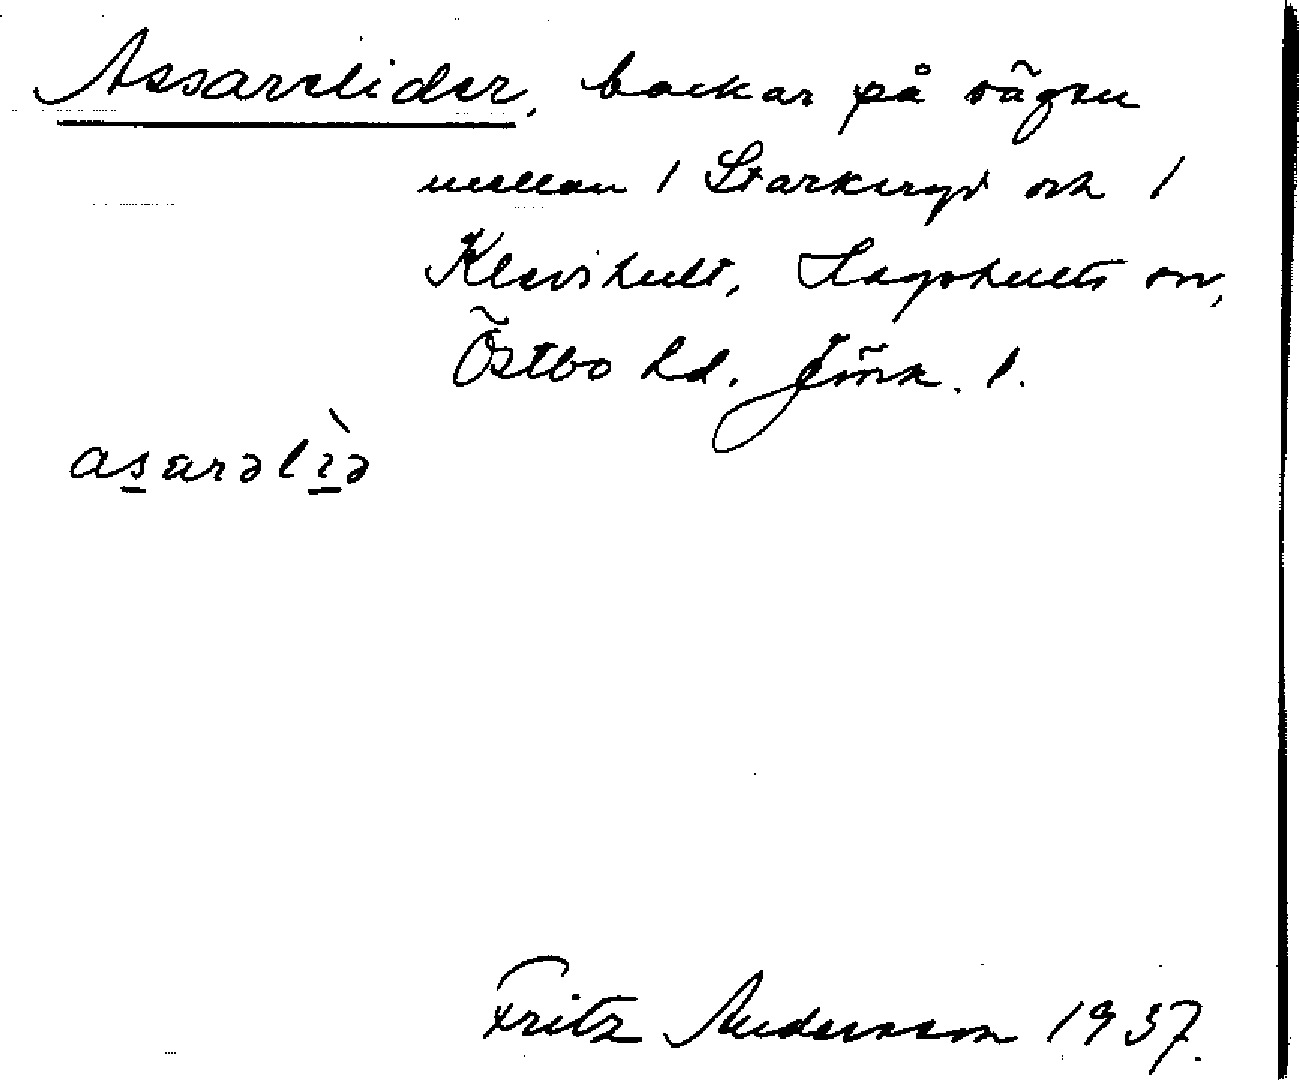 Assarelider, backar på vägen
mellan / Starkeryd och /
Klevshult, Hagshults sn,
Östbo hd. Jönk. l.
asarəlìə
Fritz Andersson 1937.